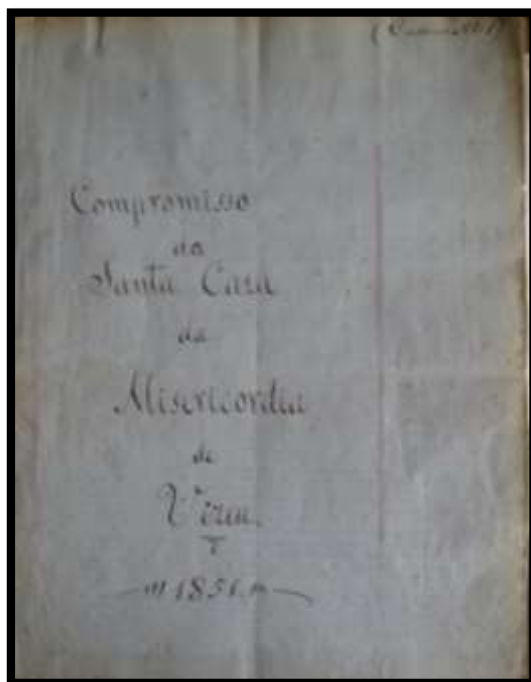 Compromisso
da
Santa Caza
da
Misericordia
de
1851